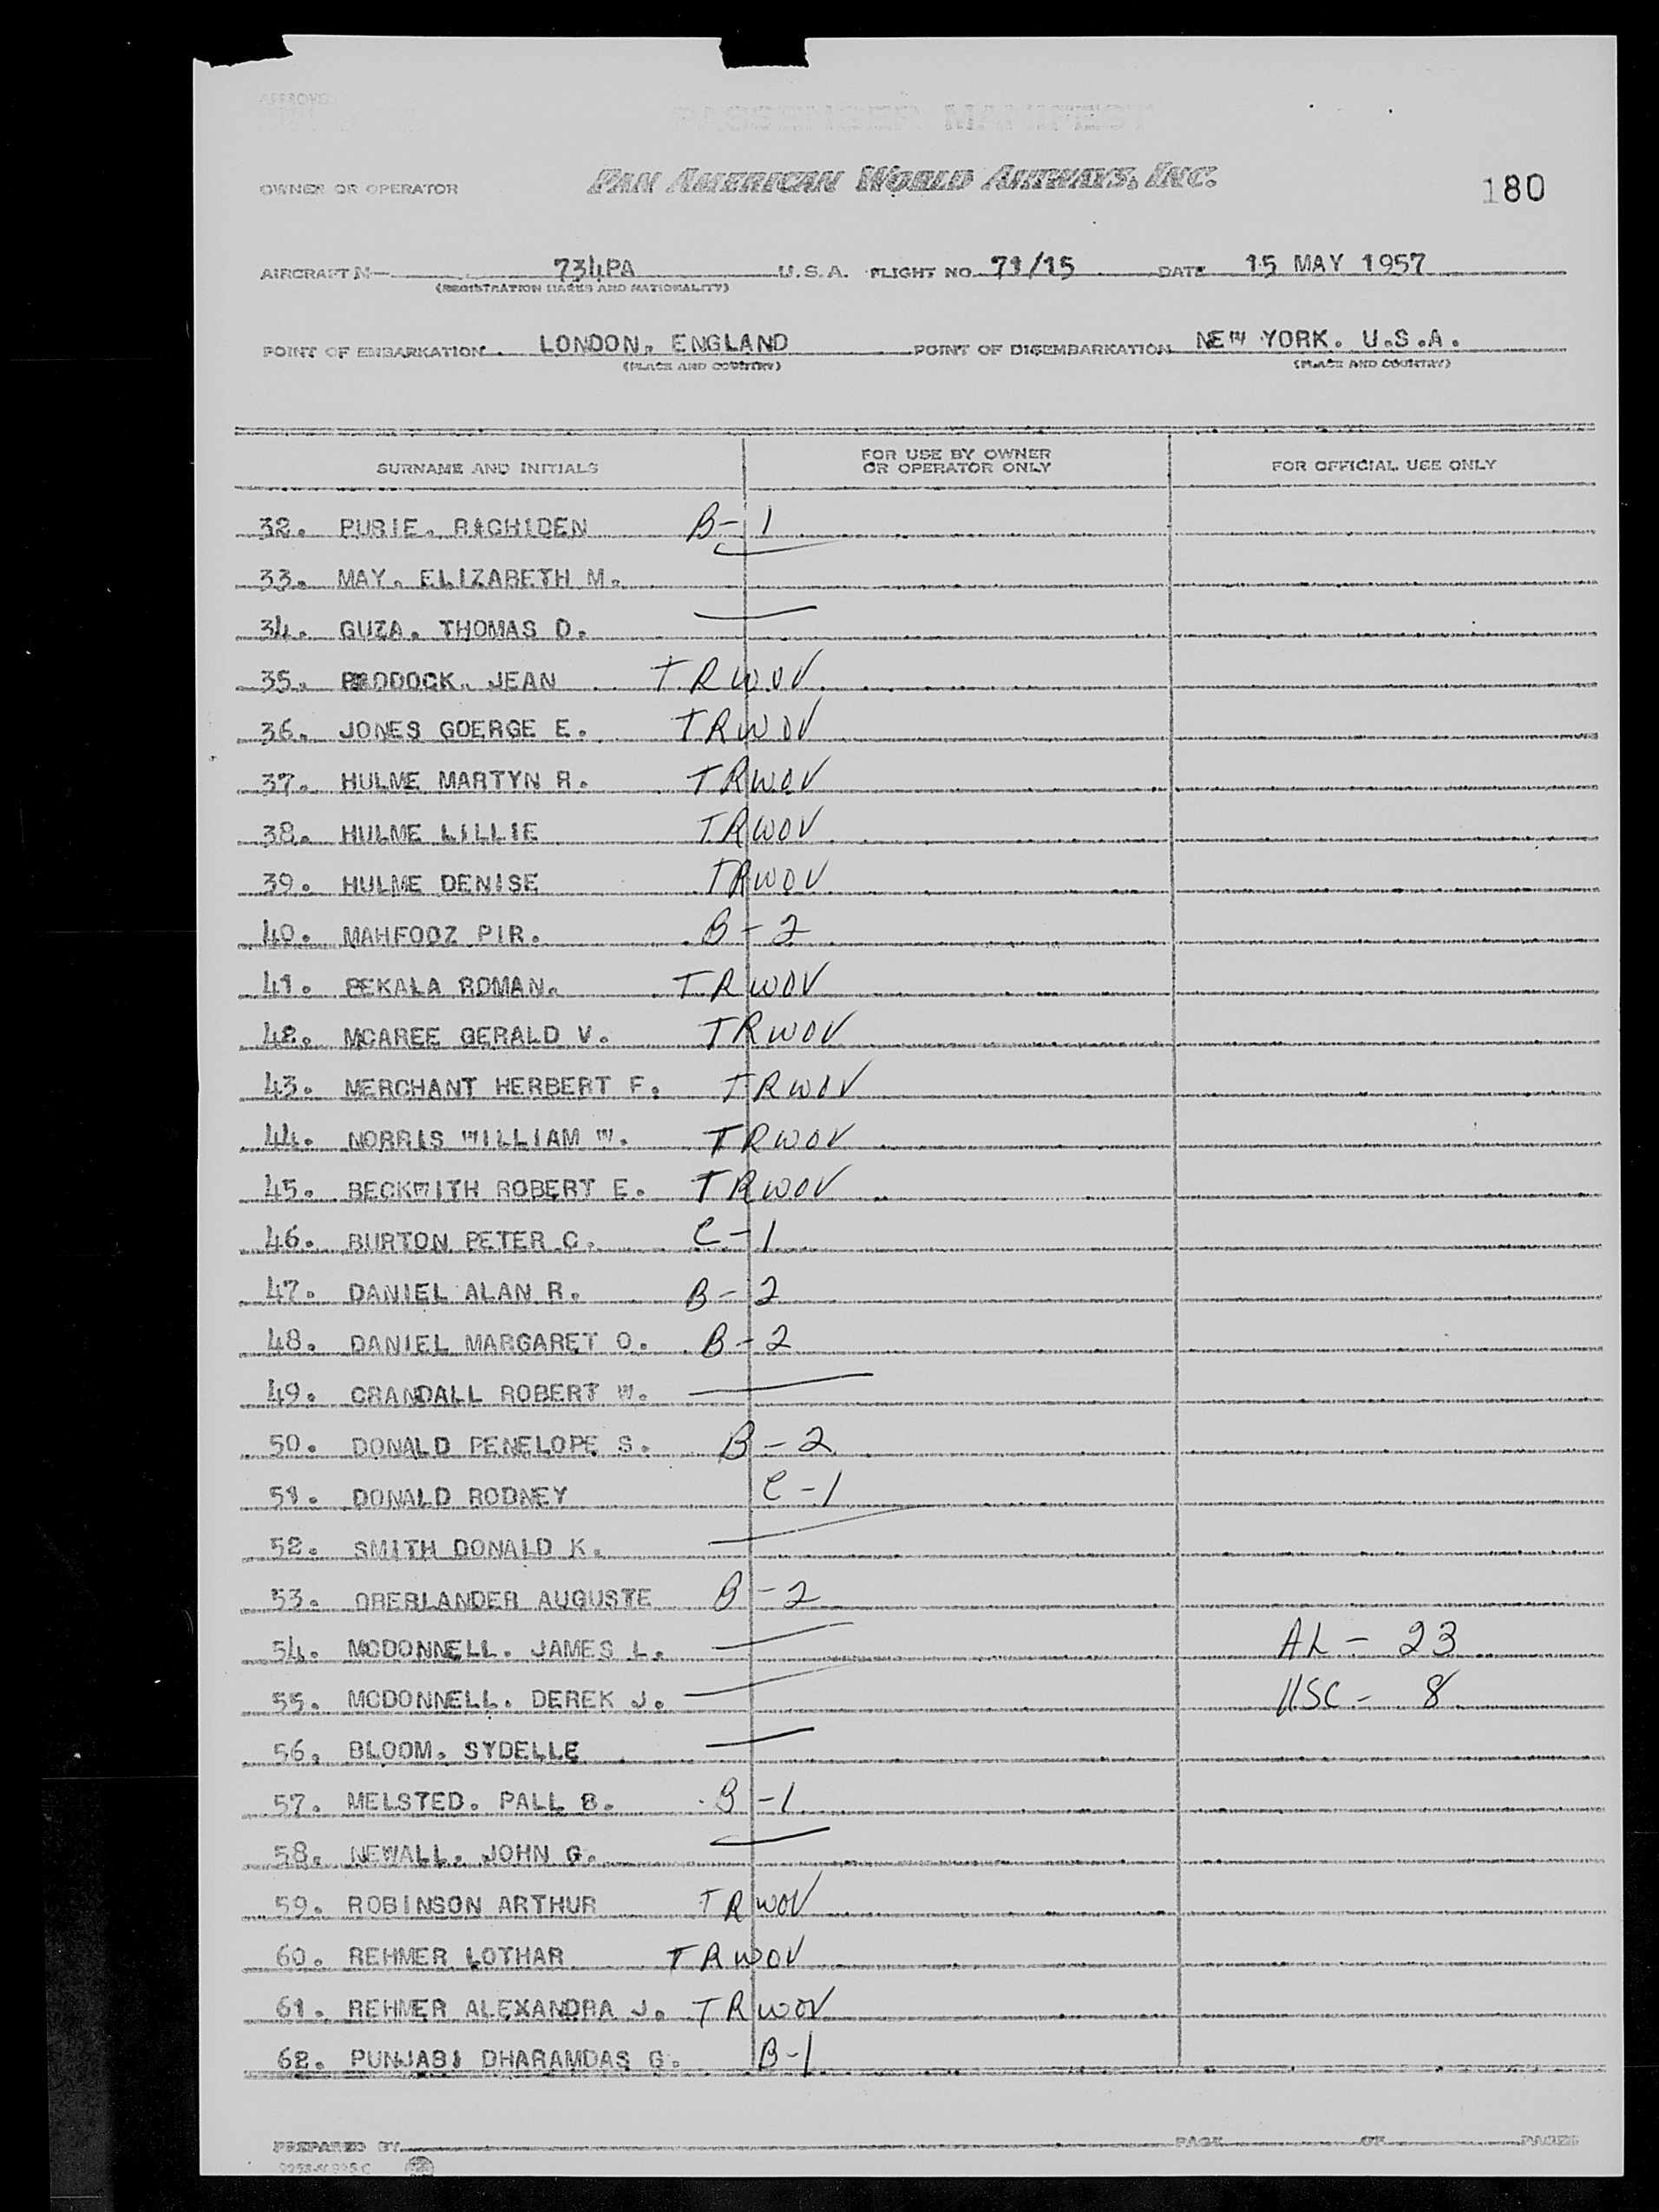 APPROVED
PASSENGER MANIFEST
OWNER OR OPERATOR PAN AMERICAN WORLD AIRWAYS, INC. 180
AIRCRAFT N— 734PA U.S.A. FLIGHT NO. 71/15 DATE 15 MAY 1957
(REGISTRATION MARKS AND NATIONALITY)
POINT OF EMBARKATION LONDON, ENGLAND POINT OF DISEMBARKATION NEW YORK. U.S.A.
(PLACE AND COUNTRY) (PLACE AND COUNTRY)
SURNAME AND INITIALS FOR USE BY OWNER OR OPERATOR ONLY FOR OFFICIAL USE ONLY
32. PURIE. RACHIDEN B-1
33. MAY. ELIZABETH M.
34. GUZA. THOMAS D.
35. JEAN TRWOV
36. JONES GOERGE E. TRWOV
37. HULME MARTYN R. TRWOV
38. HULME LILLIE TRWOV
39. HULME DENISE TRWOV
40. MAHFOOZ PIR. B-2
41. PEKALA ROMAN. TRWOV
42. MCAREE GERALD V. TRWOV
43. MERCHANT HERBERT F. TRWOV
44. NORRIS WILLIAM W. TRWOV
45. BECKWITH ROBERT E. TRWOV
46. BURTON PETER C. C-1
47. DANIEL ALAN R. B-2
48. DANIEL MARGARET O. B-2
49. CRANDALL ROBERT W.
50. DONALD PENELOPE S. B-2
51. DONALD RODNEY C-1
52. SMITH DONALD K.
53. OBERLANDER AUGUSTE B-2
54. MCDONNELL. JAMES L. AL- 23
55. MCDONNELL. DEREK J. USC- 8
56. BLOOM. SYDELLE
57. MELSTED. PALL B. B-1
58. NEWALL. JOHN G.
59. ROBINSON ARTHUR TRWOV
60. REHMER LOTHAR TRWOV
61. REHMER ALEXANDRA J. TRWOV
62. PUNJABI DHARAMDAS G. B-1
PREPARED BY PAGE OF PAGES